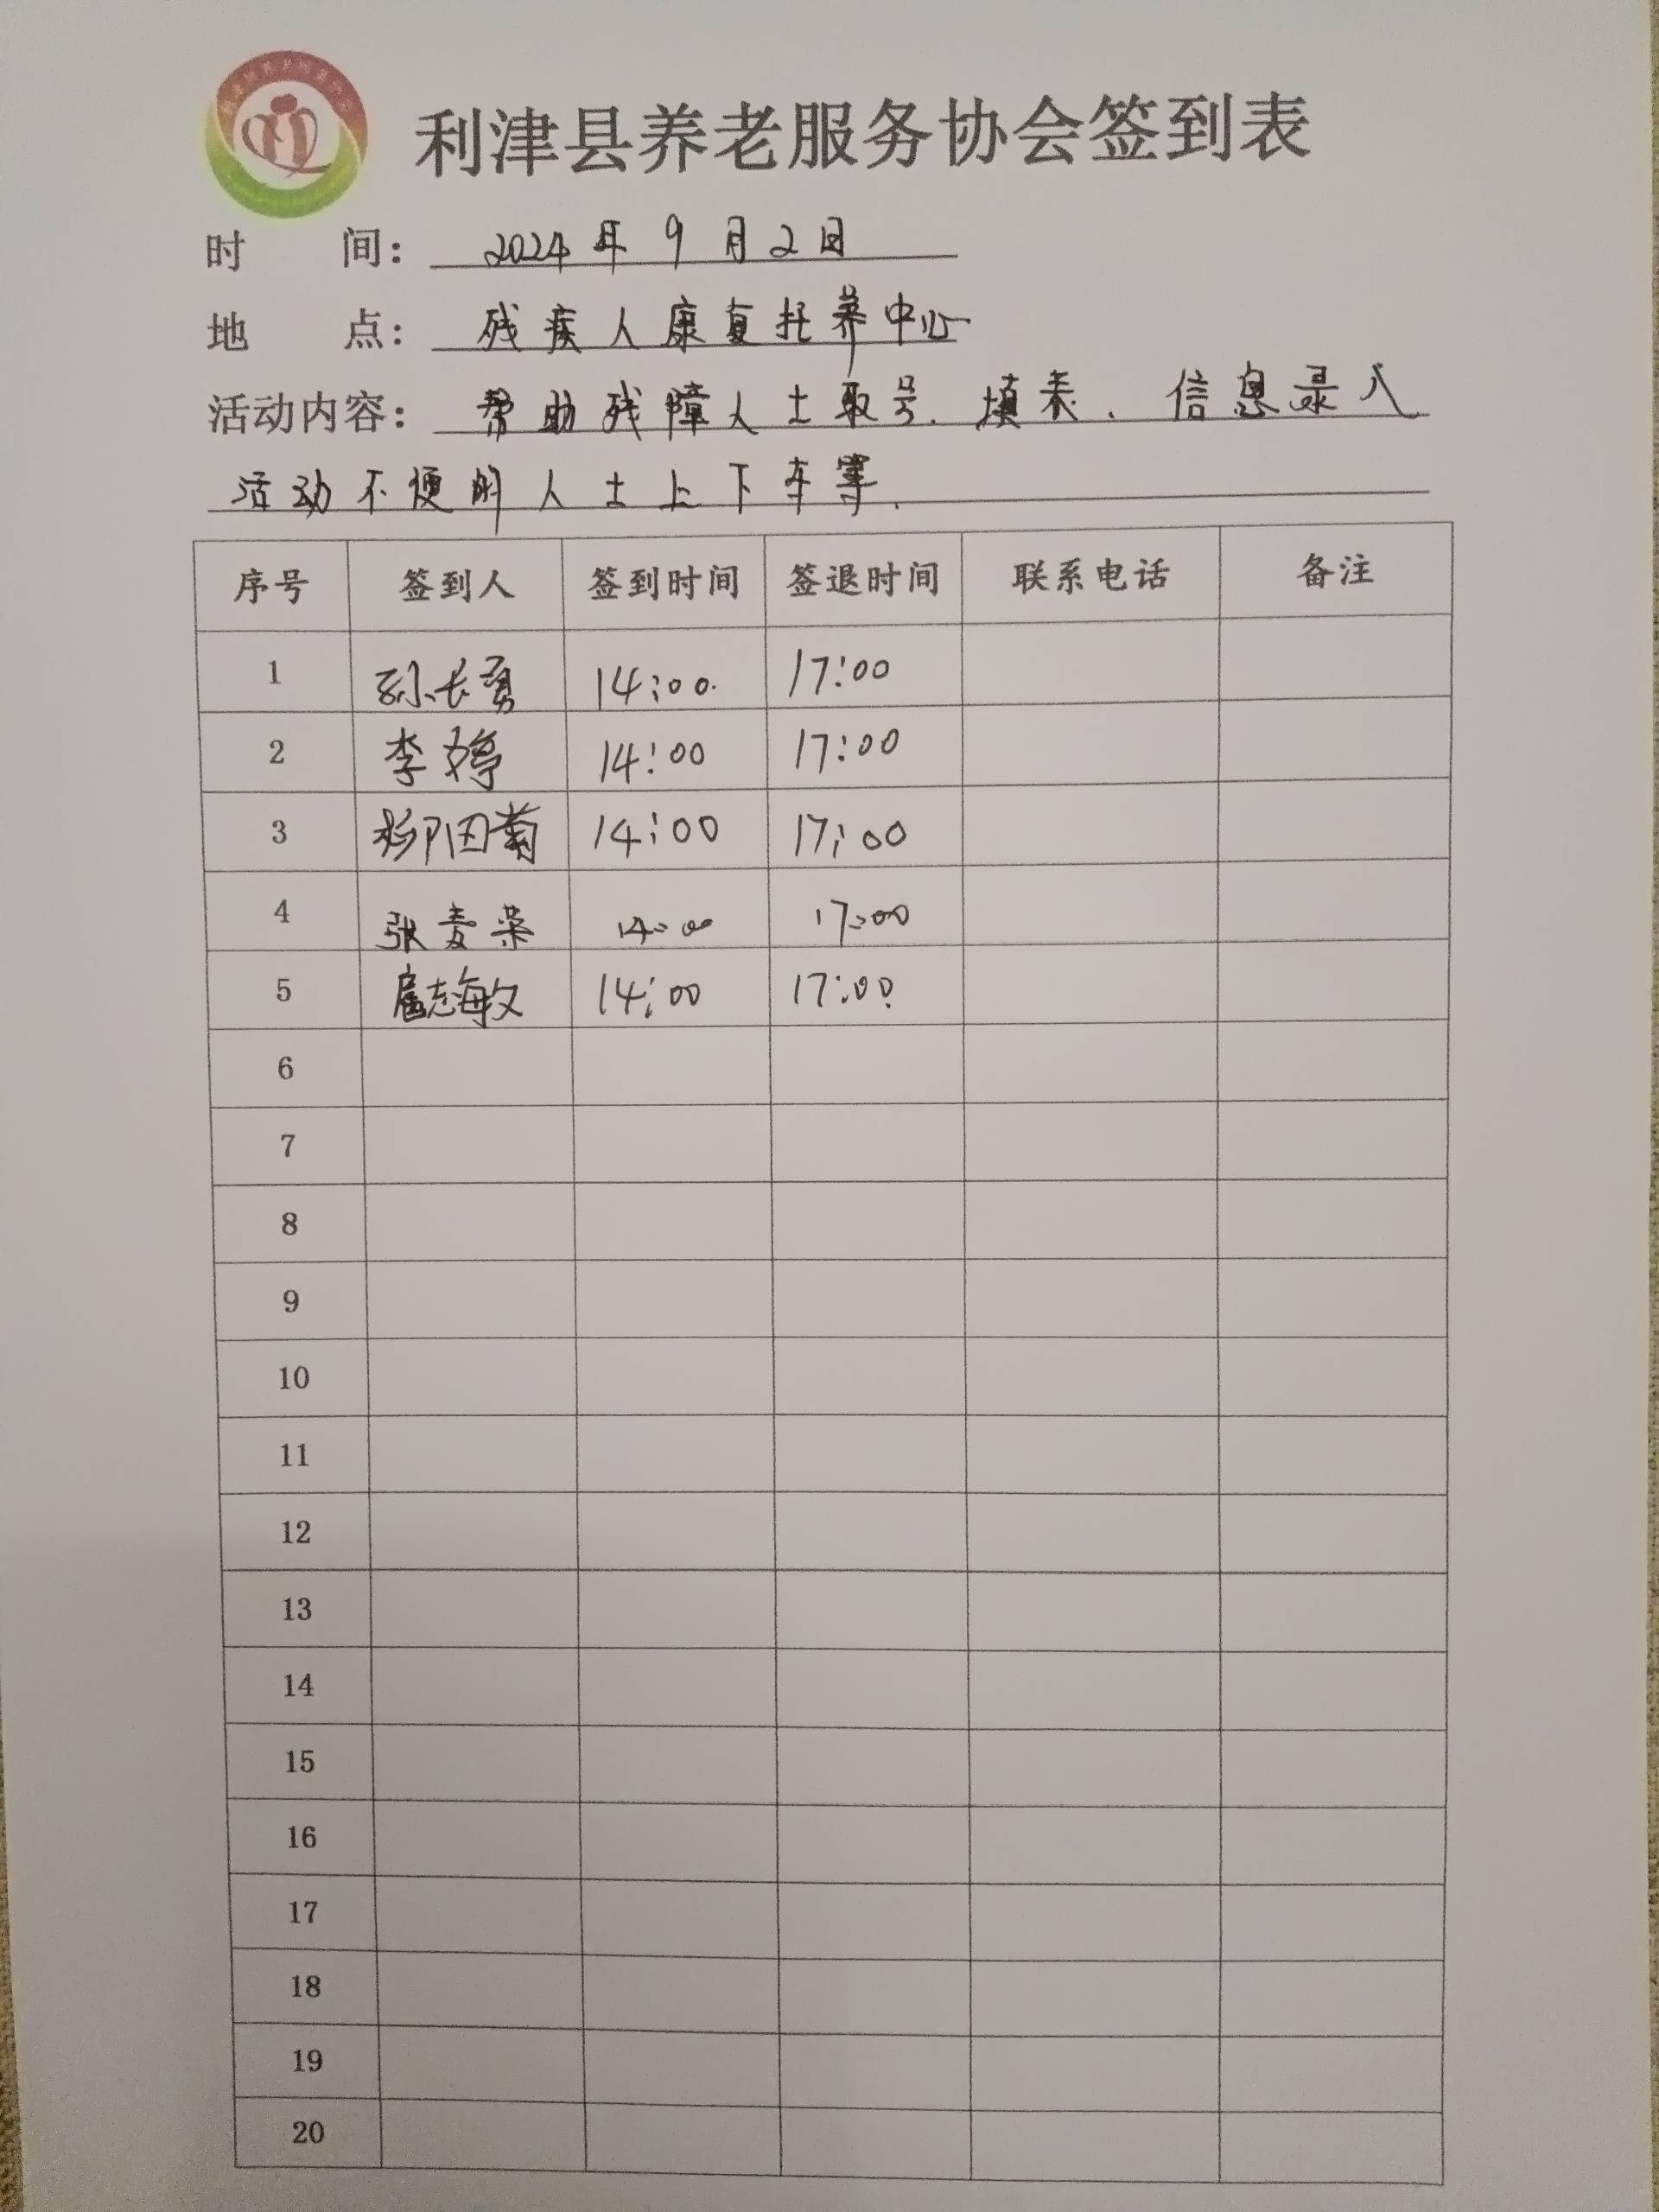 利津县养老服务协会签到表
时 间： 2024年9月2日
地 点： 残疾人康复托养中心
活动内容： 帮助残障人士取号、填表、信息录入
活动不便的人士上下车等.
序号 签到人 签到时间 签退时间 联系电话 备注
1 孙长勇 14:00 17:00
2 李婷 14:00 17:00
3 14:00 17:00
4 张麦荣 14:00 17:00
5 扈志敏 14:00 17:00
6
7
8
9
10
11
12
13
14
15
16
17
18
19
20